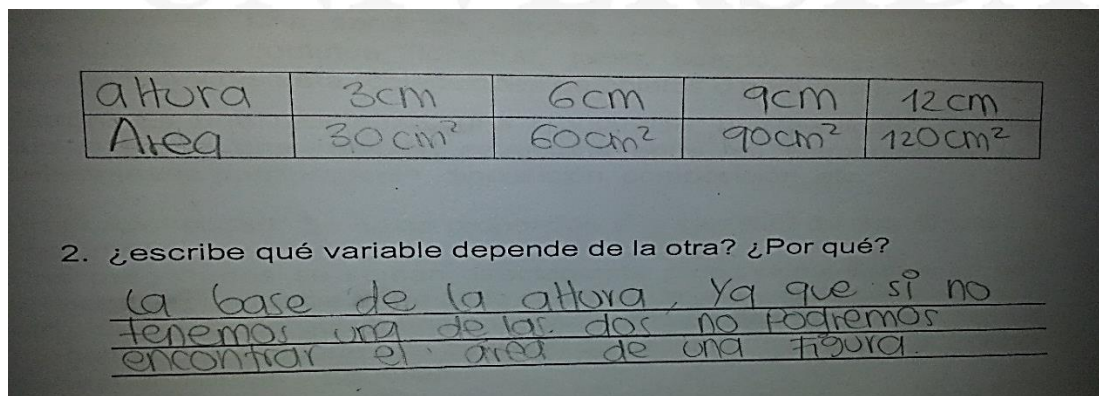 altura 3cm 6cm 9cm 12cm
Area 30cm² 60cm² 90cm² 120cm²
2. ¿escribe qué variable depende de la otra? ¿Por qué?
la base de la altura, Ya que si no
tenemos una de las dos no Podremos
encontrar el area de una Figura.